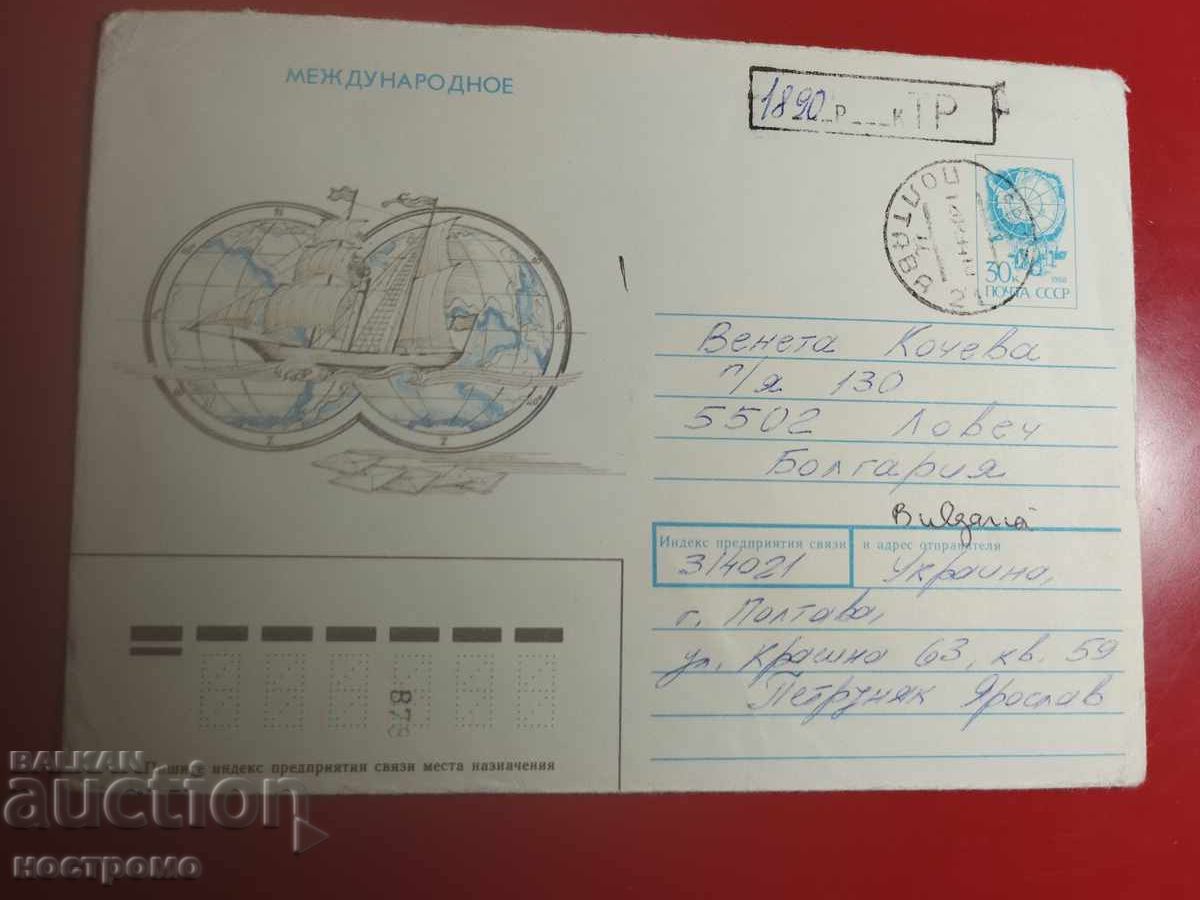 МЕЖДУНАРОДНОЕ
1890 р к ТР
ПОЛТАВА
30к
1988
ПОЧТА СССР
Венета Кочева
п/я 130
5502 Ловеч
Болгария
Индекс предприятия связи и адрес отправителя
314021 Украина,
г. Полтава,
ул. 63, кв. 59
Петруняк Ярослав
878
индекс предприятия связи места назначения
BALKAN
auction
ностромо